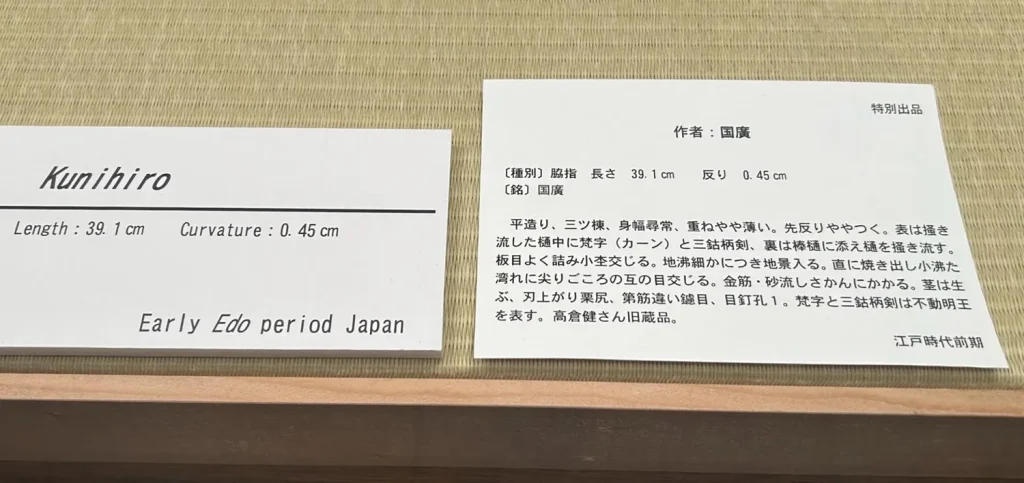 Kunihiro
Length : 39.1 cm Curvature : 0.45 cm
Early Edo period Japan
特別出品
作者：国廣
〔種別〕脇指 長さ 39.1 cm 反り 0.45 cm
〔銘〕国廣
平造り、三ツ棟、身幅尋常、重ねやや薄い。先反りややつく。表は掻き
流した樋中に梵字（カーン）と三鈷柄剣、裏は棒樋に添え樋を掻き流す。
板目よく詰み小杢交じる。地沸細かにつき地景入る。直に焼き出し小沸た
湾れに尖りごころの互の目交じる。金筋・砂流しさかんにかかる。茎は生
ぶ、刃上がり栗尻、第筋違い鑢目、目釘孔１。梵字と三鈷柄剣は不動明王
を表す。高倉健さん旧蔵品。
江戸時代前期